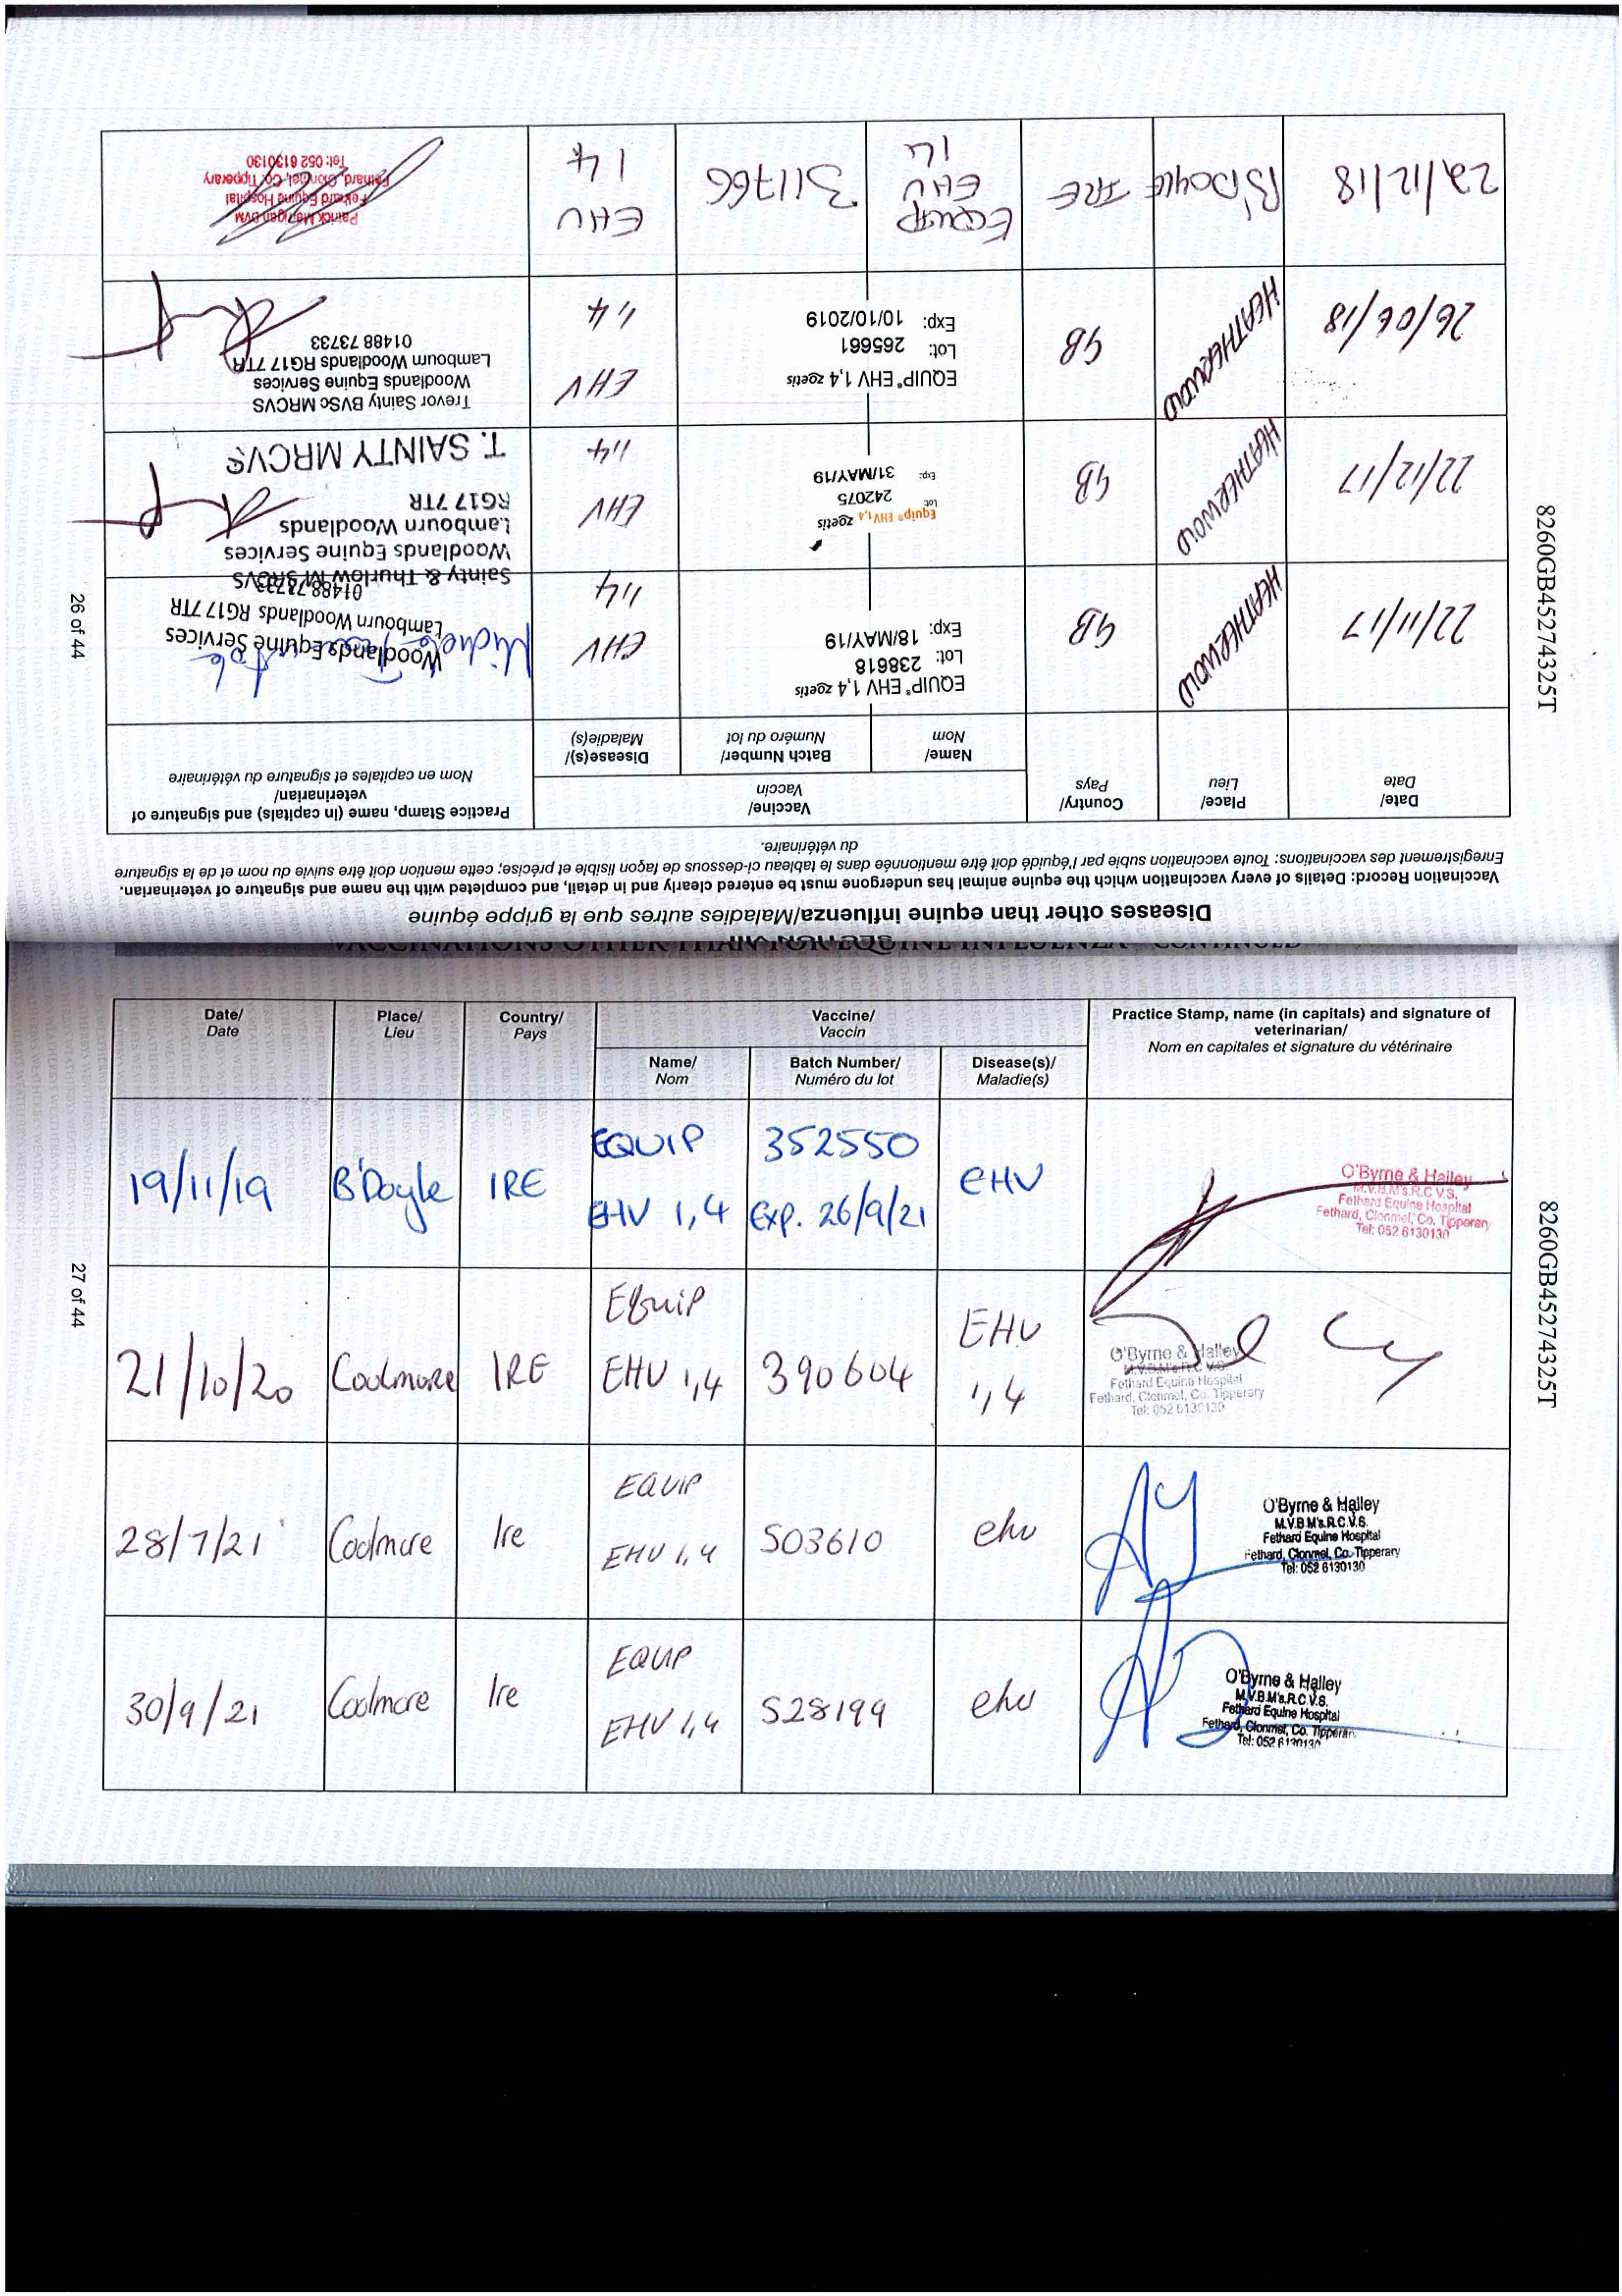 Diseases other than equine influenza/Maladies autres que la grippe équine
Vaccination Record: Details of every vaccination which the equine animal has undergone must be entered clearly and in detail, and completed with the name and signature of veterinarian.
Enregistrement des vaccinations: Toute vaccination subie par l'équidé doit être mentionnée dans le tableau ci-dessous de façon lisible et précise; cette mention doit être suivie du nom et de la signature
du vétérinaire.
Date/
Date
Place/
Lieu
Country/
Pays
Vaccine/
Vaccin
Name/
Nom
Batch Number/
Numéro du lot
Disease(s)/
Maladie(s)
Practice Stamp, name (in capitals) and signature of
veterinarian/
Nom en capitales et signature du vétérinaire
22/11/17
HEATHERWOLD
GB
EQUIP® EHV 1,4 zoetis
Lot: 238618
Exp: 18/MAY/19
EHV
1,4
Woodlands Equine Services
Lambourn Woodlands RG17 7TR
01488 73733
22/12/17
HEATHERWOLD
GB
Equip® EHV 1,4 zoetis
Lot 242075
Exp: 31/MAY/19
EHV
1,4
Sainty & Thurlow MsRCVS
Woodlands Equine Services
Lambourn Woodlands
RG17 7TR
T. SAINTY MRCVS
26/06/18
HEATHERWOLD
GB
EQUIP® EHV 1,4 zoetis
Lot: 265661
Exp: 10/10/2019
EHV
1,4
Trevor Sainty BVSc MRCVS
Woodlands Equine Services
Lambourn Woodlands RG17 7TR
01488 73733
22/12/18
B'Doyle
IRE
EQUIP
EHU
14
311766
EHU
14
Patrick Merrigan DVM
Fethard Equine Hospital
Fethard, Clonmel, Co. Tipperary
Tel: 052 6130130
26 of 44
8260GB45274325T
VACCINATIONS OTHER THAN FOR EQUINE INFLUENZA - CONTINUED
Date/
Date
Place/
Lieu
Country/
Pays
Vaccine/
Vaccin
Name/
Nom
Batch Number/
Numéro du lot
Disease(s)/
Maladie(s)
Practice Stamp, name (in capitals) and signature of
veterinarian/
Nom en capitales et signature du vétérinaire
19/11/19
B'Doyle
IRE
EQUIP
EHV 1,4
352550
Exp. 26/9/21
EHV
O'Byrne & Halley
M.V.B.M's.R.C.V.S.
Fethard Equine Hospital
Fethard, Clonmel, Co. Tipperary
Tel: 052 6130130
21/10/20
Coolmore
IRE
EQuiP
EHU 1,4
390604
EHU
1,4
O'Byrne & Halley
M.V.B.M's.R.C.V.S.
Fethard Equine Hospital
Fethard, Clonmel, Co. Tipperary
Tel: 052 6130130
28/7/21
Coolmore
Ire
EQUIP
EHU 1,4
503610
ehv
O'Byrne & Halley
M.V.B.M's.R.C.V.S.
Fethard Equine Hospital
Fethard, Clonmel, Co. Tipperary
Tel: 052 6130130
30/9/21
Coolmore
Ire
EQUIP
EHV 1,4
528199
ehv
O'Byrne & Halley
M.V.B.M's.R.C.V.S.
Fethard Equine Hospital
Fethard, Clonmel, Co. Tipperary
Tel: 052 6130130
27 of 44
8260GB45274325T